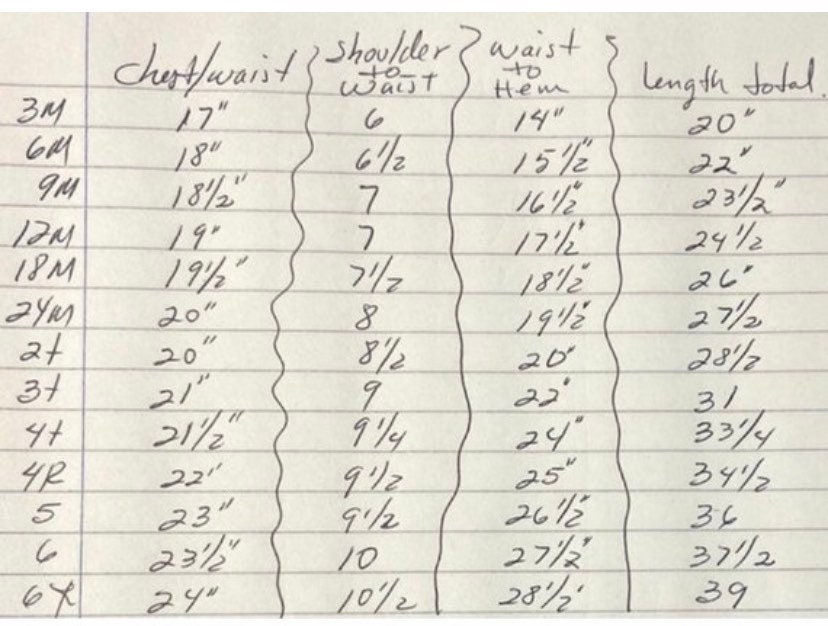 chest/waist shoulder to waist waist to Hem Length total.
3M 17" 6 14" 20"
6M 18" 6 1/2 15 1/2" 22"
9M 18 1/2" 7 16 1/2" 23 1/2"
12M 19" 7 17 1/2" 24 1/2
18M 19 1/2" 7 1/2 18 1/2" 26"
24M 20" 8 19 1/2" 27 1/2
2t 20" 8 1/2 20" 28 1/2
3t 21" 9 22" 31
4t 21 1/2" 9 1/4 24" 33 1/4
4R 22" 9 1/2 25" 34 1/2
5 23" 9 1/2 26 1/2" 36
6 23 1/2" 10 27 1/2" 37 1/2
6X 24" 10 1/2 28 1/2" 39